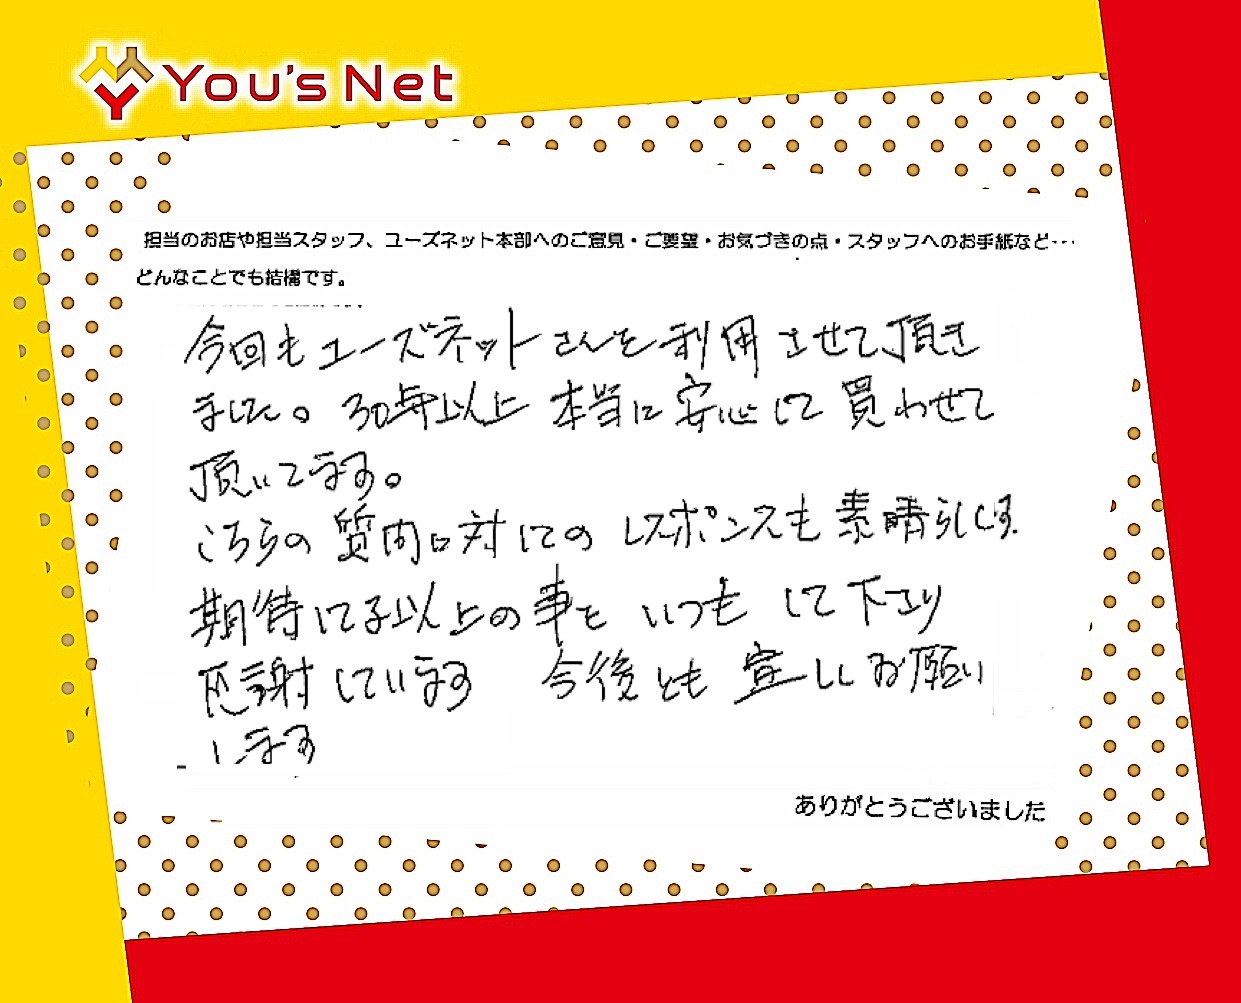 You's Net
担当のお店や担当スタッフ、ユーズネット本部へのご意見・ご要望・お気づきの点・スタッフへのお手紙など…
どんなことでも結構です。
今回もユーズネットさんを利用させて頂き
ました。30年以上 本当に安心して買わせて
頂いてます。
こちらの質問に対しての レスポンスも素晴らしいです
期待してる以上の事を いつも して下さり
感謝しています 今後とも 宜しくお願い
します
ありがとうございました